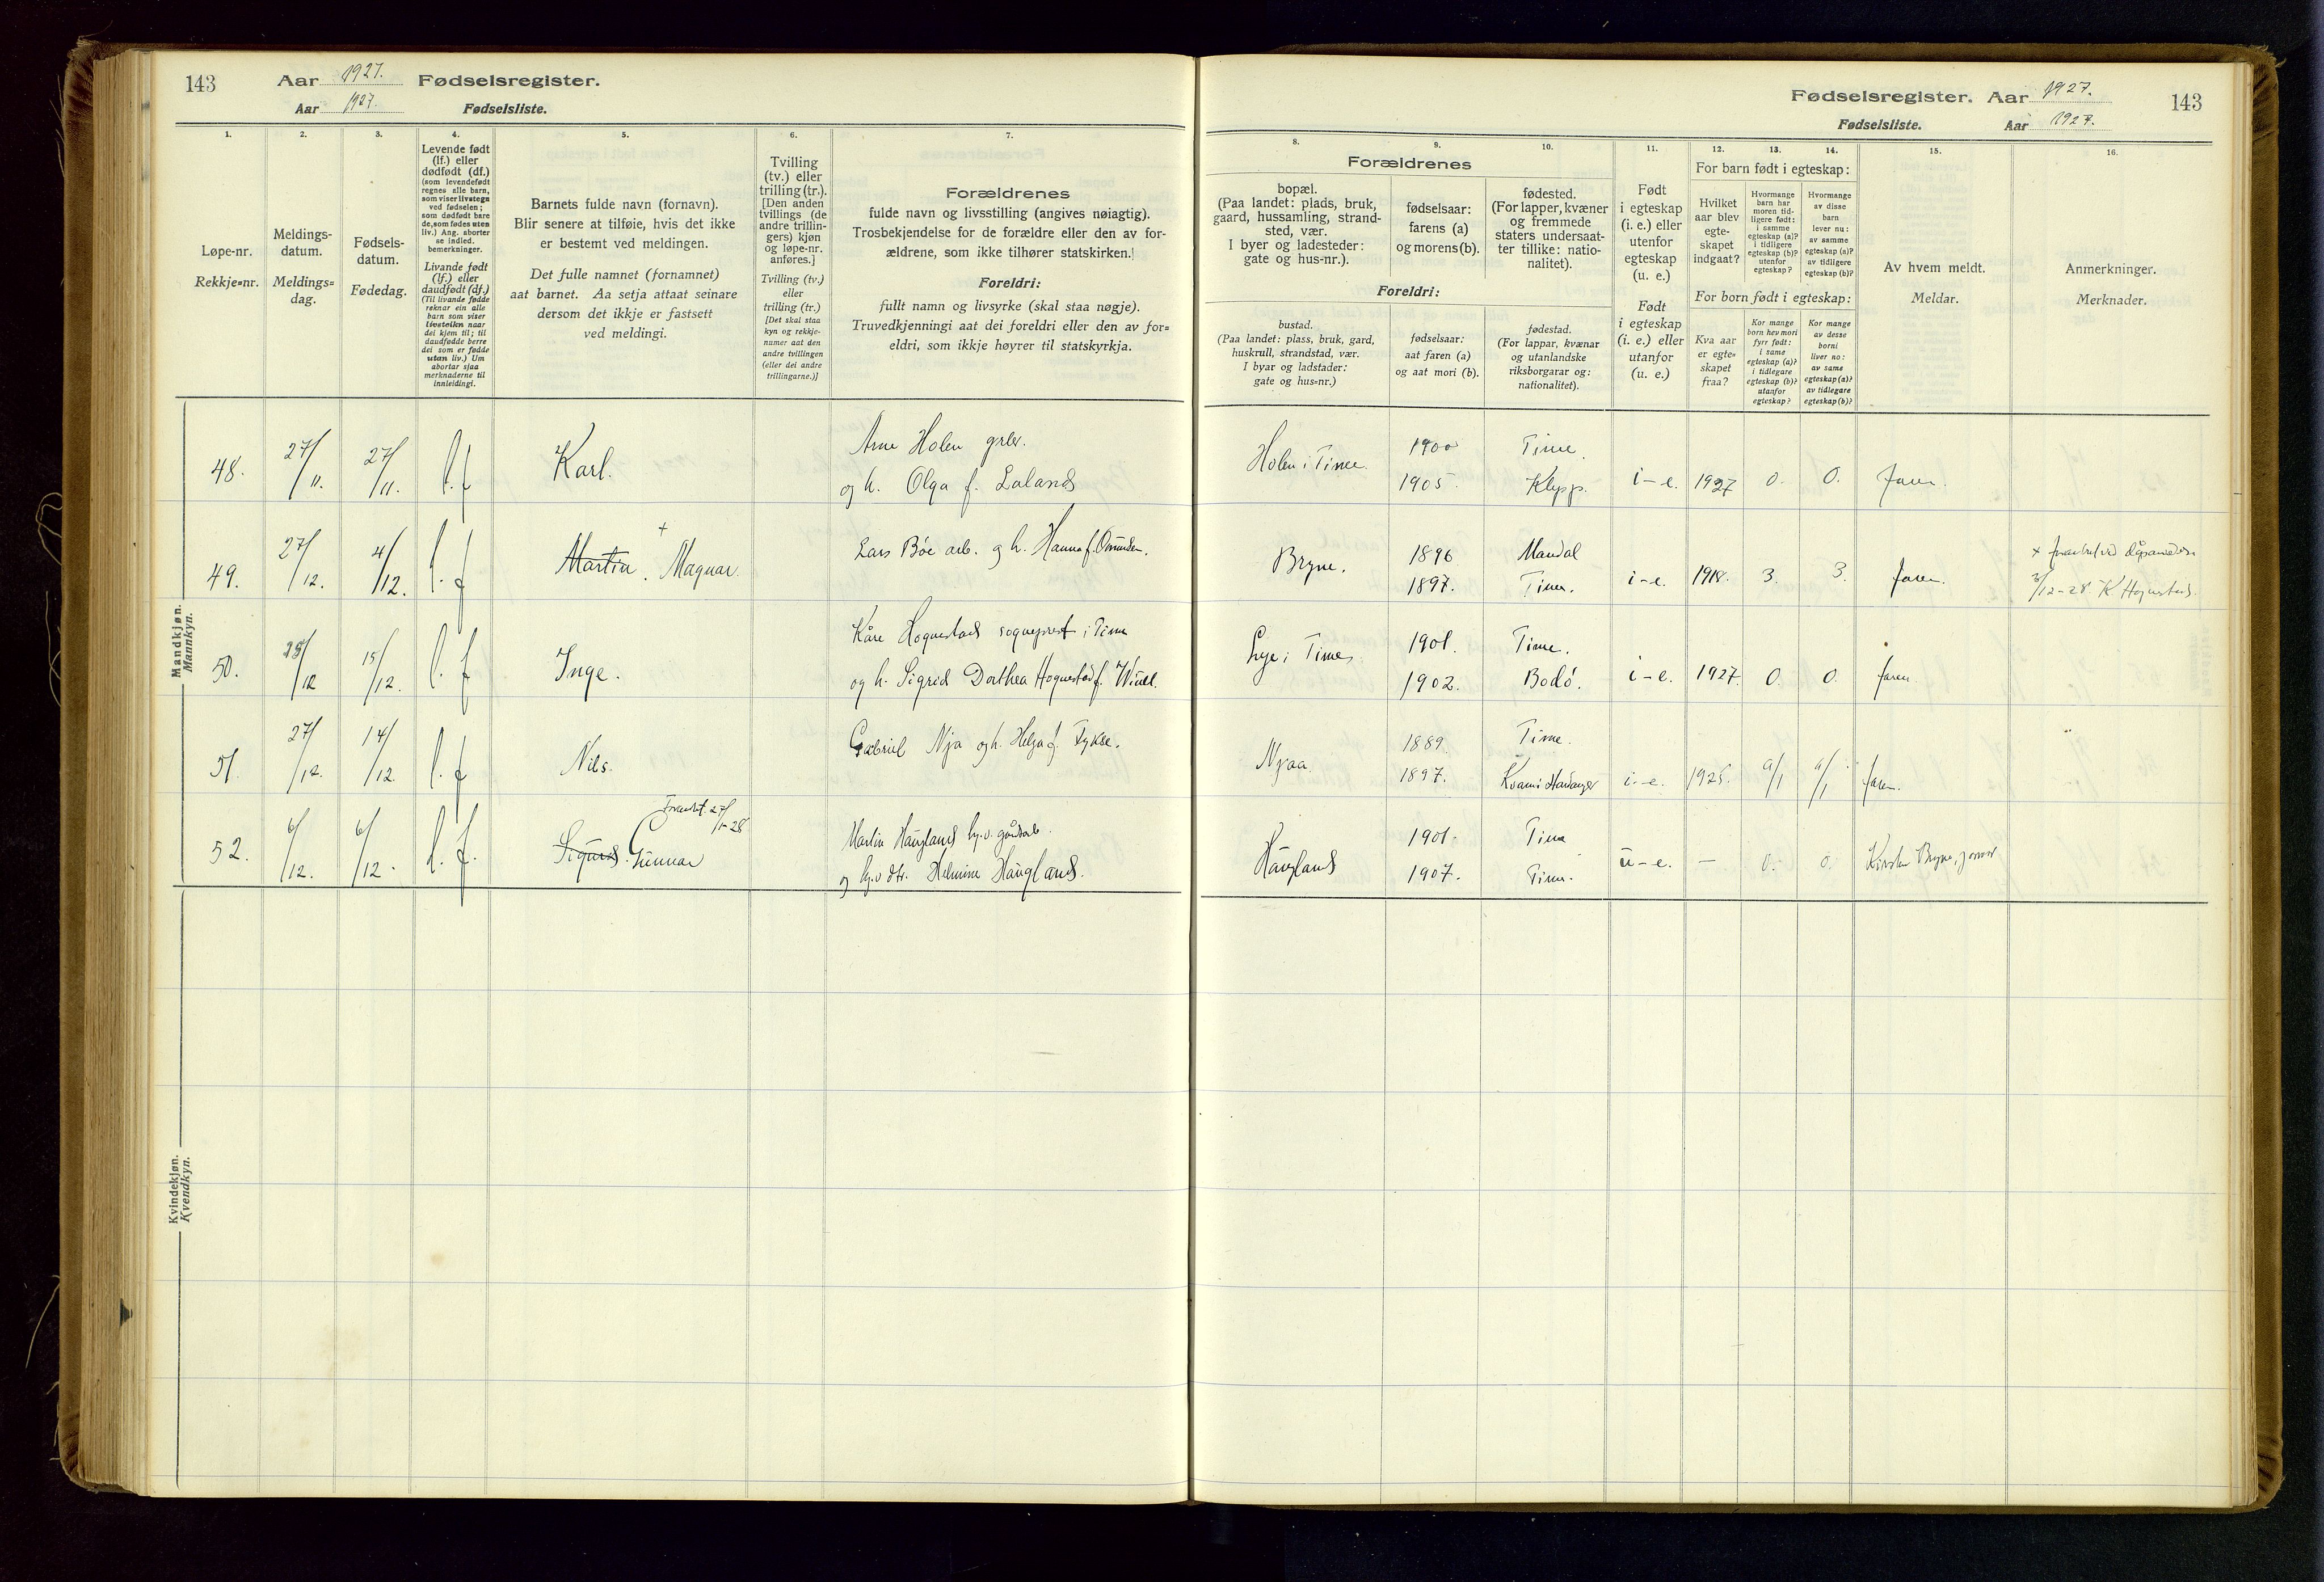 143 Aar 1927. Fødselsregister.
Aar 1927. Fødselsliste.
Fødselsregister. Aar 1927. 143
Fødselsliste. Aar 1927.
1. 2. 3. 4. 5. 6. 7.
Løpe-nr.
Rekkje-nr.
Meldings-
datum.
Meldings-
dag.
Fødsels-
datum.
Fødedag.
Levende født
(lf.) eller
dødfødt (df.)
(som levendefødt
regnes alle barn,
som viser livstegn
ved fødselen;
som dødfødt bare
de, som fødes uten
liv.) Ang. aborter
se indled.
bemerkninger.
Livande født
(lf.) eller
daudfødt (df.)
(Til livande fødde
reknar ein alle
barn som viser
livsteikn naar
dei kjem til; til
daudfødde berre
dei som er fødde
utan liv.) Um
abortar sjaa
merknaderne til
innleidingi.
Barnets fulde navn (fornavn).
Blir senere at tilføie, hvis det ikke
er bestemt ved meldingen.
Det fulle namnet (fornamnet)
aat barnet. Aa setja attaat seinare
dersom det ikkje er fastsett
ved meldingi.
Tvilling
(tv.) eller
trilling (tr.).
[Den anden
tvillings (de
andre trillin-
gers) kjøn
og løpe-nr.
anføres.]
Tvilling (tv.)
eller
trilling (tr.)
[Det skal staa
kyn og rekkje-
numer aat den
andre tvillingen
(eller dei andre
trillingarne.)]
Forældrenes
fulde navn og livsstilling (angives nøiagtig).
Trosbekjendelse for de forældre eller den av for-
ældrene, som ikke tilhører statskirken.
Foreldri:
fullt namn og livsyrke (skal staa nøgje).
Truvedkjenningi aat dei foreldri eller den av for-
eldri, som ikkje høyrer til statskyrkja.
8. 9. 10. 11. 12. 13. 14. 15. 16.
Forældrenes
bopæl.
(Paa landet: plads, bruk,
gaard, hussamling, strand-
sted, vær.
I byer og ladesteder:
gate og hus-nr.).
fødselsaar:
farens (a)
og morens (b).
fødested.
(For lapper, kvæner
og fremmede
staters undersaat-
ter tillike: natio-
nalitet).
Foreldri:
bustad.
(Paa landet: plass, bruk, gard,
huskrull, strandstad, vær.
I byar og ladstader:
gate og hus-nr.)
fødselsaar:
aat faren (a)
og aat mori (b).
fødestad.
(For lappar, kvænar
og utanlandske
riksborgarar og:
nationalitet).
Født
i egteskap
(i. e.) eller
utenfor
egteskap
(u. e.)
Født
i egteskap
(i. e.) eller
utanfor
(u. e.)
For barn født i egteskap:
Hvilket
aar blev
egte-
skapet
indgaat?
Hvormange
barn har
moren tid-
ligere født:
i samme
egteskap (a)?
i tidligere
egteskap (b)?
utenfor
egteskap?
Hvormange
av disse
barn
lever nu:
av samme
egteskap (a)?
av tidligere
egteskap (b)?
For born født i egteskap:
Kva aar
er egte-
skapet
fraa?
Kor mange
born hev mori
fyrr født:
i same
egteskap (a)?
i tidlegare
egteskap (b)?
utanfor
egteskap?
Kor mange
av desse
borni
liver no:
av same
egteskap (a)?
av tidlegare
egteskap (b)?
Av hvem meldt.
Meldar.
Anmerkninger.
Merknader.
Mandkjøn.
Mannkyn.
48. 27/11. 27/11. l. f Karl. Arne Holen grbr.
og h. Olga f. Laland
Holen i Time. 1900 Time.
1905. Klepp. i-e. 1927 0. 0. Faren.
49. 27/12. 4/12. l. f Martin. + Magnar. Lars Bøe arb. og h. Hanna f.
Bryne. 1896 Mandal
1897. Time. i-e. 1918. 3. 3. faren. + ved
/12-28 K Hognestad.
50. /12 15/12. l. f Inge. Kåre Hognestad sogneprest i Time
og h. Sigrid Dorthea Hognestad f.
Lye i Time. 1901. Time.
1902. Bodø. i-e. 1927. 0. 0. faren.
51. 27/12. 14/12. l. f Nils. Gabriel Nja og h. Helga f. Tykse.
Njaa 1889. Time.
1897. Kvam i Hardanger i-e. 1925. a/1 a/1 faren.
52. 6/12. 6/12. l. f. Sigurd. Gunnar 27/1-28
Martin Haugland
og Helmine Haugland.
Haugland 1901. Time
1907. Time. u-e. — 0. 0. Bryne, jormor
Kvindekjøn.
Kvendkyn.